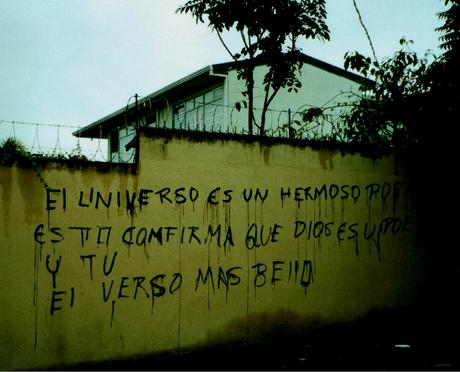 El UNIVERSO ES UN HERMOSO
ESTO CONFIRMA QUE DIOS ES
Y TU
El VERSO MAS BEllO